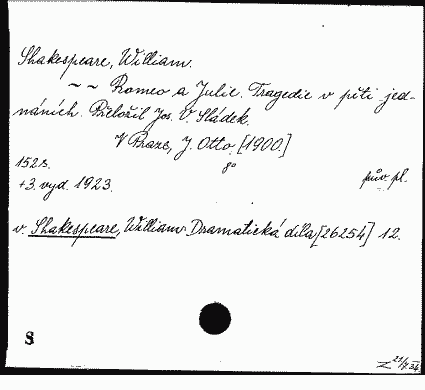 Shakespeare, William.
~ ~ Romeo a Julie. Tragedie v pěti jed-
náních. Přeložil Jos. V. Sládek.
V Praze, J. Otto. [1900]
152 s. 8°
+3. vyd. 1923. pův. pl.
v. Shakespeare, William: Dramatická díla [26254] 12.
S